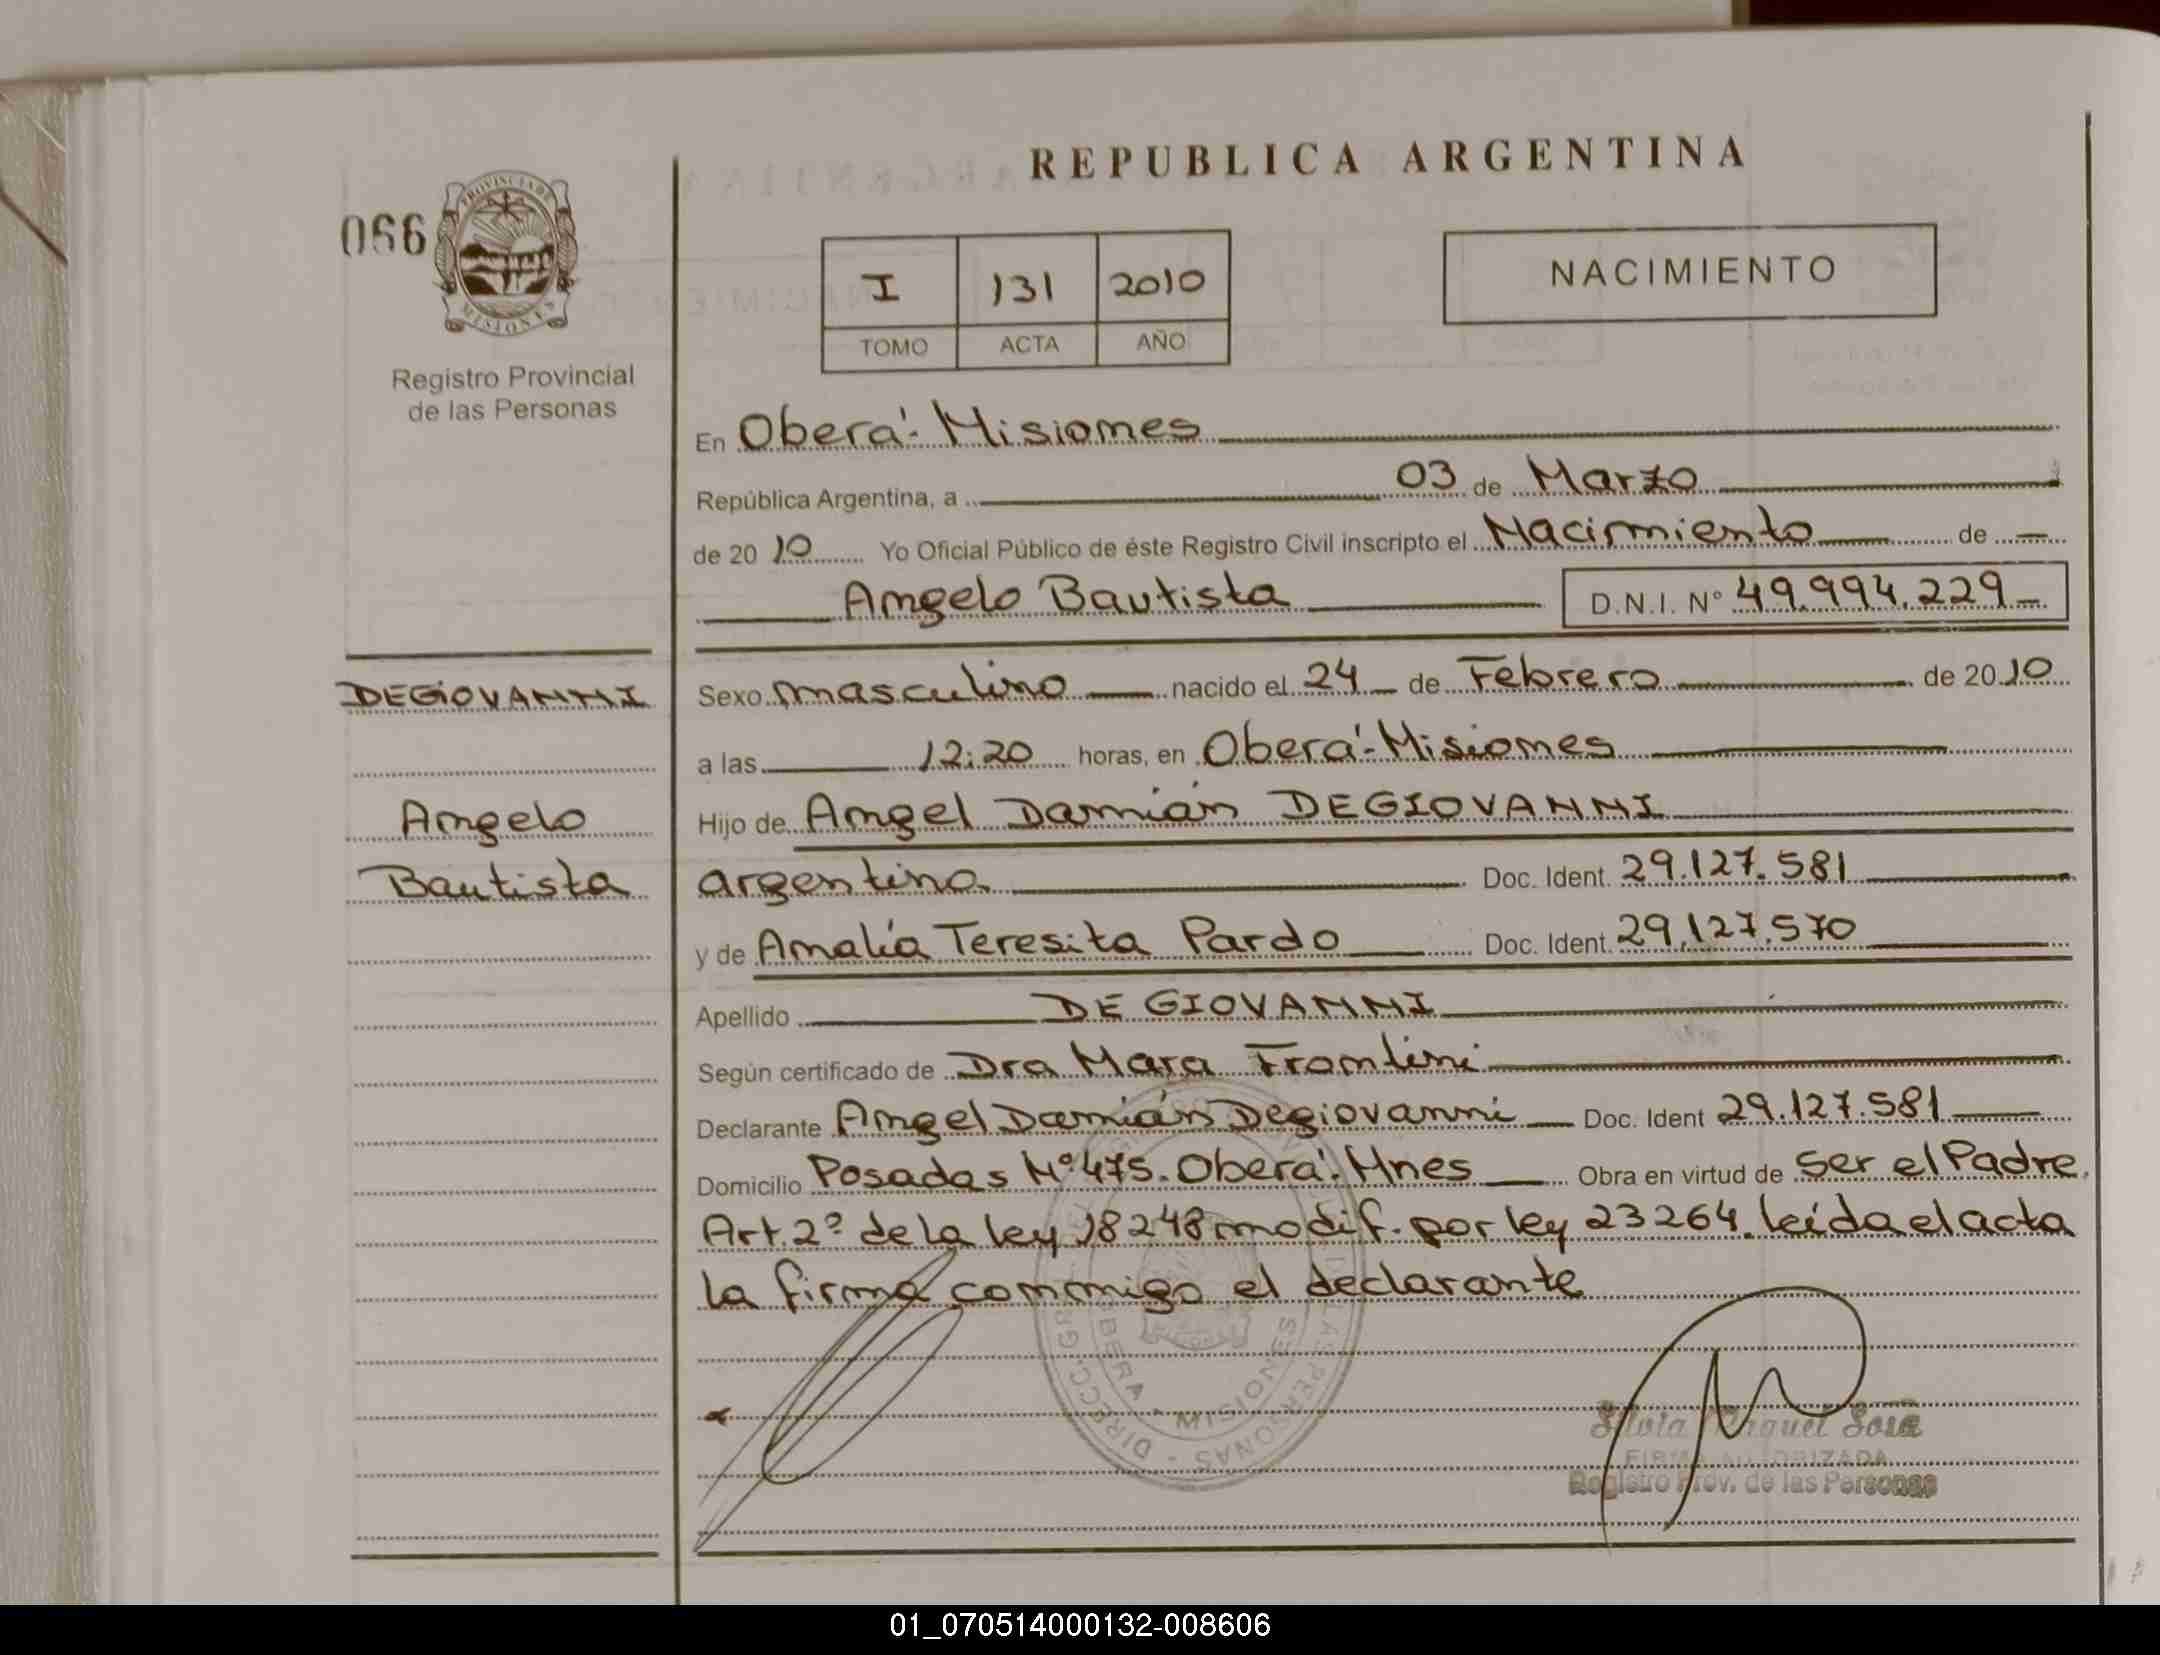 REPUBLICA ARGENTINA
066
PROVINCIA DE
MISIONES
Registro Provincial
de las Personas
I 131 2010
TOMO ACTA AÑO
NACIMIENTO
En Oberá - Misiones
República Argentina, a 03 de Marzo
de 20 10 Yo Oficial Público de éste Registro Civil inscripto el Nacimiento de
Angelo Bautista D.N.I. N° 49.994.229
DEGIOVANNI
Angelo
Bautista
Sexo masculino nacido el 24 de Febrero de 20 10
a las 12:20 horas, en Oberá - Misiones
Hijo de Angel Damián DEGIOVANNI
argentino Doc. Ident. 29.127.581
y de Amalía Teresita Pardo Doc. Ident. 29.127.570
Apellido DEGIOVANNI
Según certificado de Dra Mara Frontini
Declarante Angel Damián Degiovanni Doc. Ident 29.127.581
Domicilio Posadas N° 475. Oberá - Mnes Obra en virtud de ser el Padre.
Art. 2° de la ley 18248 modif. por ley 23264. leída el acta
la firma conmigo el declarante
MISIONES
PERSONAS
Silvia Sosa
FIRMA AUTORIZADA
Registro Prov. de las Personas
01_070514000132-008606